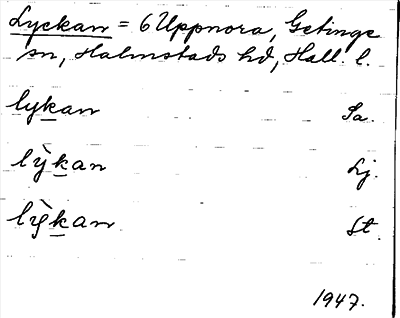 Lyckan = 6 Uppnora, Getinge
sn, Halmstads hd, Hall. l.
lykan Sa.
lỳkan Lj.
lỳkan St.
1947.